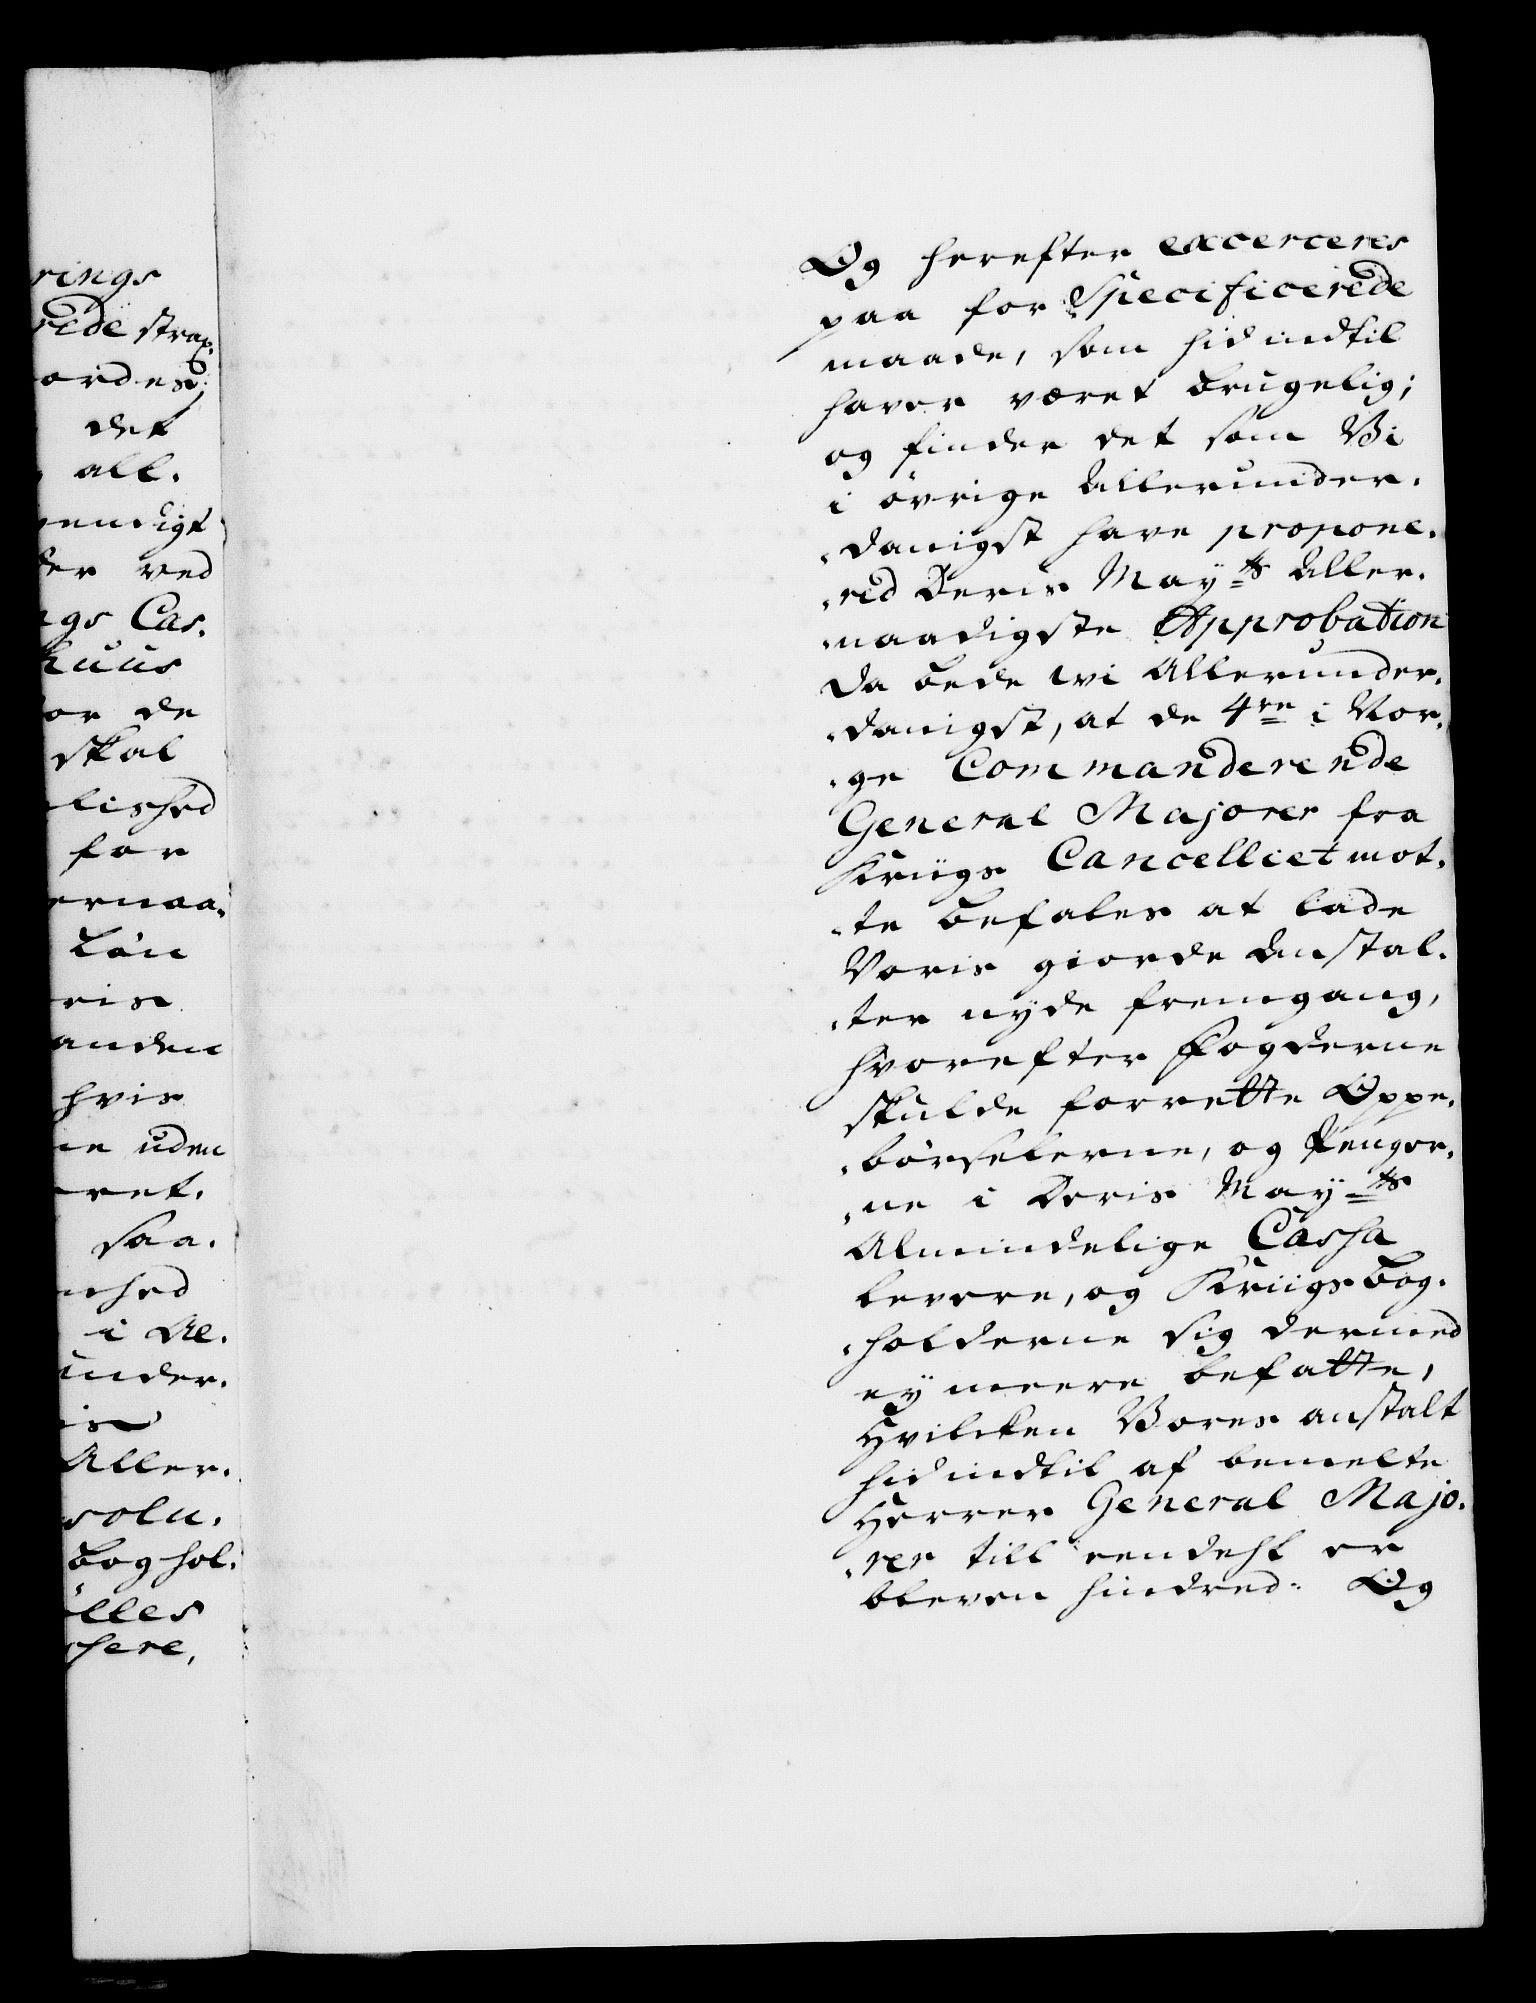 rings
rede strax.
ordes;
det
all.
endigt
der ved
ngs Cas.
huus
or de
skal
lished
for
ernaa.
Løn
ris
anden
hvis
ne uden
ret.
saa.
nhed
i Al.
under.
is
Aller.
solu.
boghol.
elles
here,
Og herefter excerceres
paa for Specificerede
maade, som hid indtil
haver været brugelig;
og finder det som Vi
i øvrige Allerunder.
danigst have propone.
red Deris Mayts Aller.
naadigste Approbation
da bede wi Allerunder.
danigst, at de 4re i Nor.
ge Commanderende
General Majorer fra
Kriigs Cancelliet mot.
te befales at lade
Voris giorde Anstal.
ter nyde fremgang,
hvorefter Fogderne
skulde forrette Oppe.
børselerne, og Penger.
ne i Deris Mayts
Almindelige Cassa
levere, og Kriigsbog.
holderne sig dermed
ey meere befatte,
Hvilcken Vores anstalt
hid indtil af bemelte
Herrer General Majo.
rer till eendehl er
bleven hindred. Og